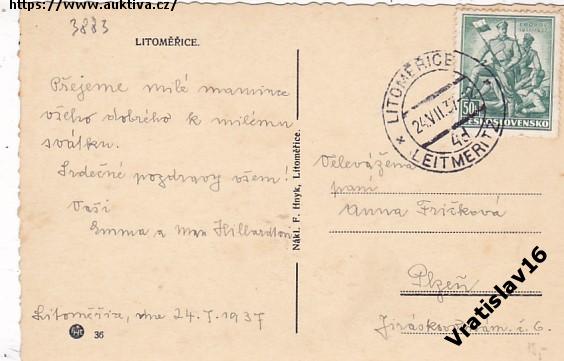 https://www.auktiva.cz/
3883
LITOMĚŘICE.
Přejeme milé mamince
všeho dobrého k milému
svátku.
Srdečné pozdravy všem!
Vaši
Emma a Max Hillardtovi
Litoměřice, dne 24.7.1937
36
Nákl. F. Hnyk, Litoměřice.
LITOMĚŘICE
24.VII.37
4d
LEITMERITZ
50
ČESKOSLOVENSKO
Velevážená
paní
Anna Fričková
Plzeň
Jiráskovo nám. č. 6.
Vratislav16